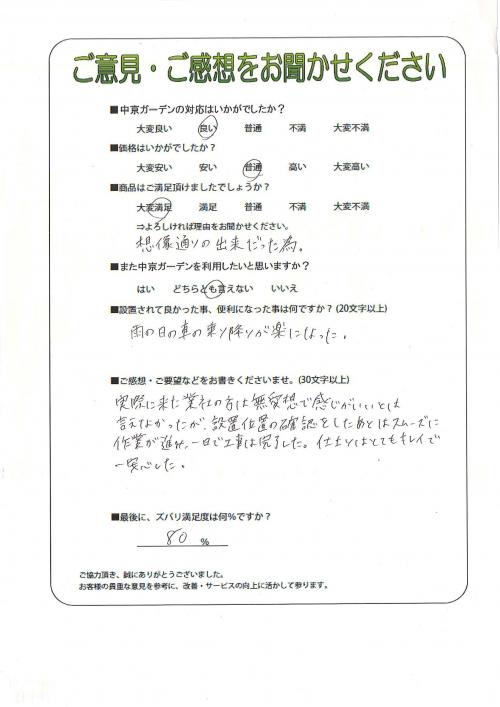 ご意見・ご感想をお聞かせください
■中京ガーデンの対応はいかがでしたか？
大変良い 良い 普通 不満 大変不満
■価格はいかがでしたか？
大変安い 安い 普通 高い 大変高い
■商品はご満足頂けましたでしょうか？
大変満足 満足 普通 不満 大変不満
⇒よろしければ理由をお聞かせください。
想像通りの出来だった為。
■また中京ガーデンを利用したいと思いますか？
はい どちらとも言えない いいえ
■設置されて良かった事、便利になった事は何ですか？(20文字以上)
雨の日の車の乗り降りが楽になった。
■ご感想・ご要望などをお書きくださいませ。(30文字以上)
実際に来た業社の方は無愛想で感じがいいとは
言えなかったが、設置位置の確認をしたあとはスムーズに
作業が進み、一日で工事は完了した。仕上りはとてもキレイで
一安心した。
■最後に、ズバリ満足度は何％ですか？
80 ％
ご協力頂き、誠にありがとうございました。
お客様の貴重な意見を参考に、改善・サービスの向上に活かして参ります。